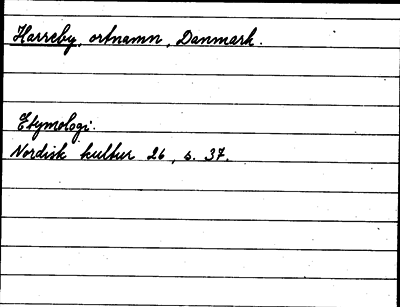 Harreby, ortnamn, Danmark.
Etymologi.
Nordisk kultur 26, s. 37.